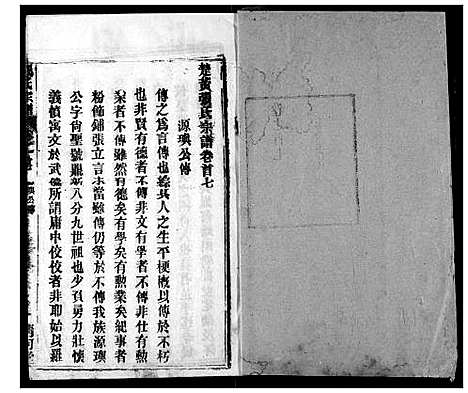 楚黃張氏宗譜卷首七
源璵公傳
傳之為言傳也綜其人之生平梗概以傳於不朽
也非賢有德者不傳非文有學者不傳非仕有勲
業者不傳雖然有德矣有學矣有勲業矣紀事者
粉飾鋪張立言未當雖傳仍等於不傳我族源璵
公字尙聖號 八分九世祖也少負勇力壯懷
義憤寓文於武 所謂庸中佼佼者非耶始以羅